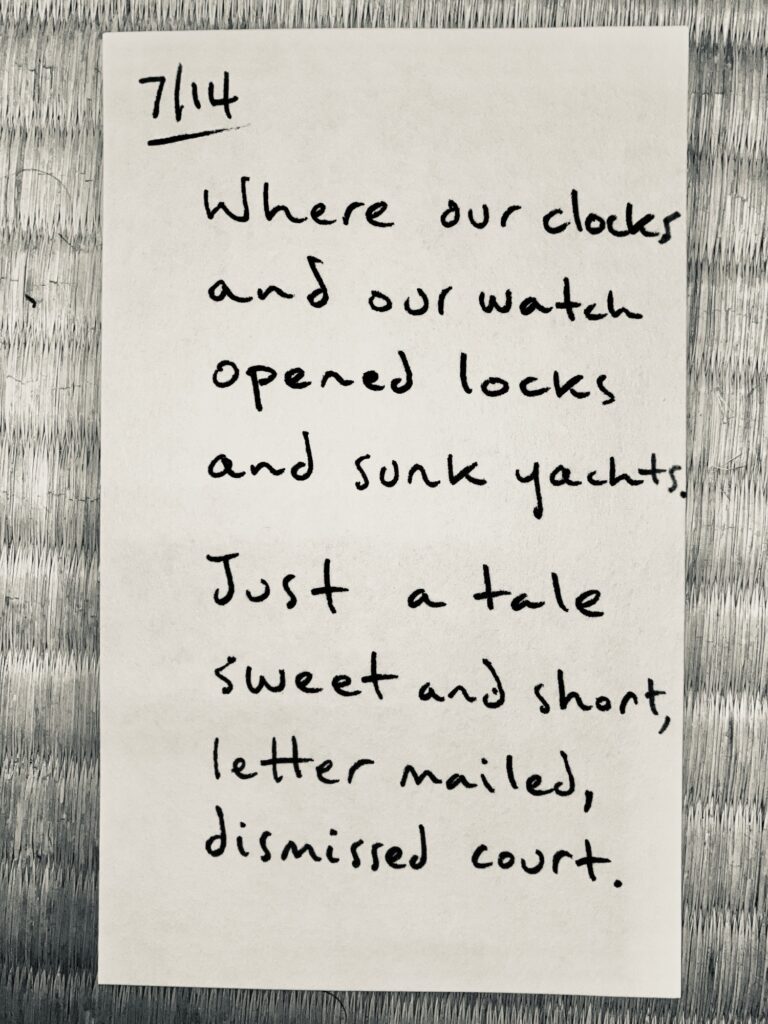 7/14
Where our clocks
and our watch
opened locks
and sunk yachts.
Just a tale
sweet and short,
letter mailed,
dismissed court.